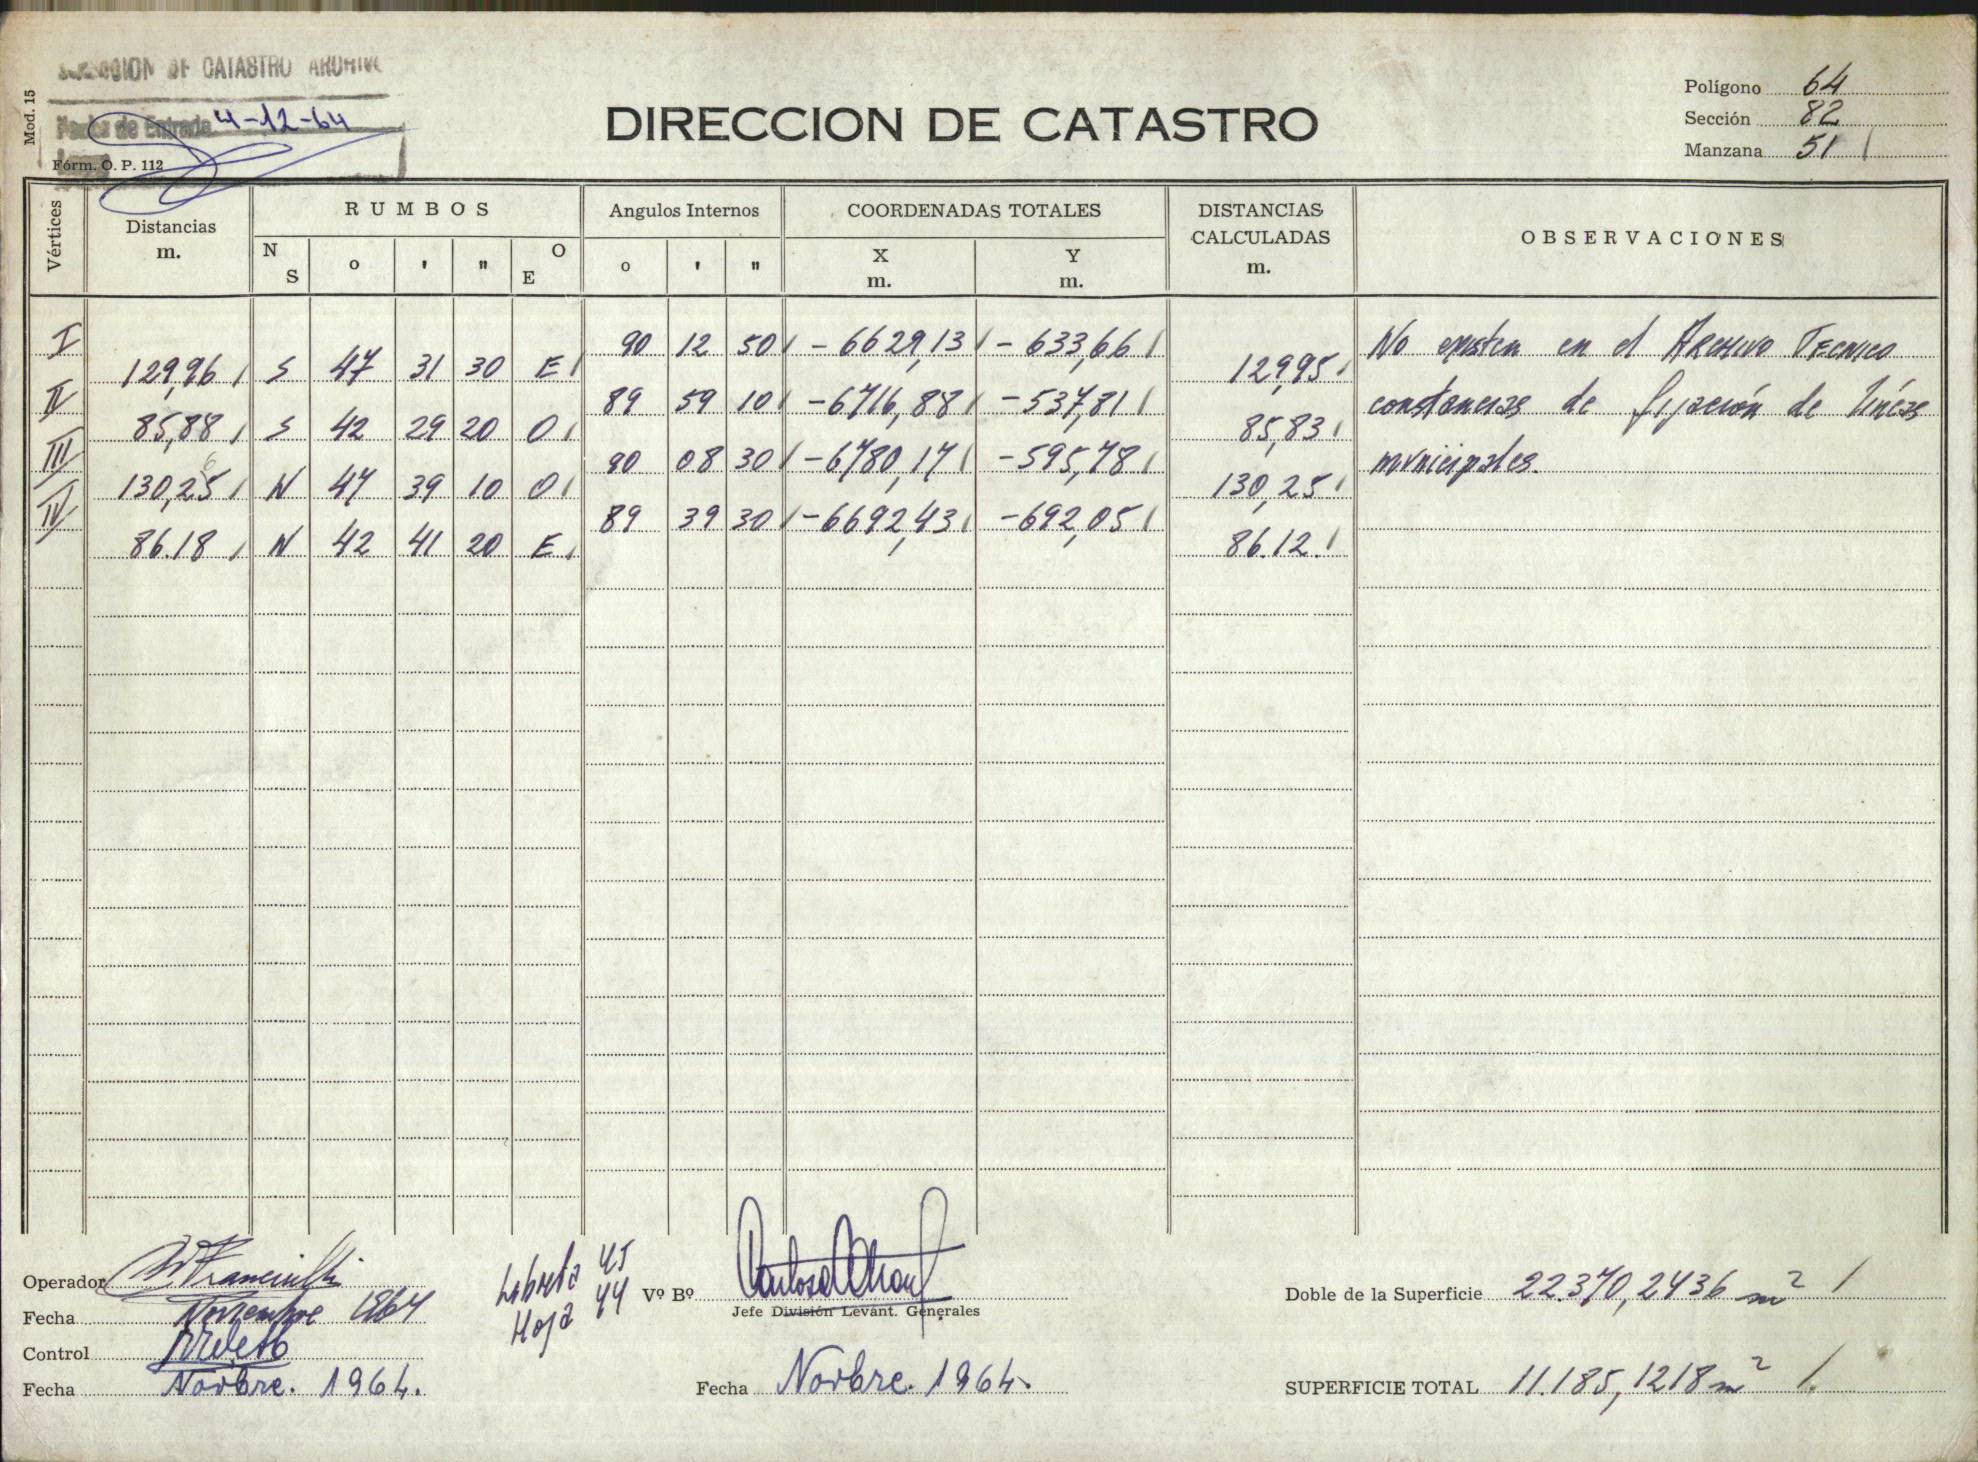 DIRECCION DE CATASTRO ARCHIVO
Fecha de Entrada 4-12-64
Mod. 15
Fórm. O. P. 112
DIRECCION DE CATASTRO
Polígono 64
Sección 82
Manzana 51
Vértices
Distancias
m.
RUMBOS
N
S
o
'
"
O
E
Angulos Internos
o
'
"
COORDENADAS TOTALES
X
m.
Y
m.
DISTANCIAS
CALCULADAS
m.
OBSERVACIONES
I 90 12 50 -6629,13 -633,66
129,96 S 47 31 30 E 129,95
II 89 59 10 -6716,88 -537,81
85,88 S 42 29 20 O 85,83
III 90 08 30 -6780,17 -595,78
130,25 N 47 39 10 O 130,25
IV 89 39 30 -6692,43 -692,05
86.18 N 42 41 20 E 86.12.
No existen en el Archivo Tecnico
constancias de fijación de líneas
municipales.
Operador
Fecha Noviembre 1964
Control
Fecha Novbre. 1964.
Libreta 45
Hoja 44
Vº Bº
Jefe División Levant. Generales
Fecha Novbre. 1964.
Doble de la Superficie 22.370,2436 m²
SUPERFICIE TOTAL 11.185,1218 m²